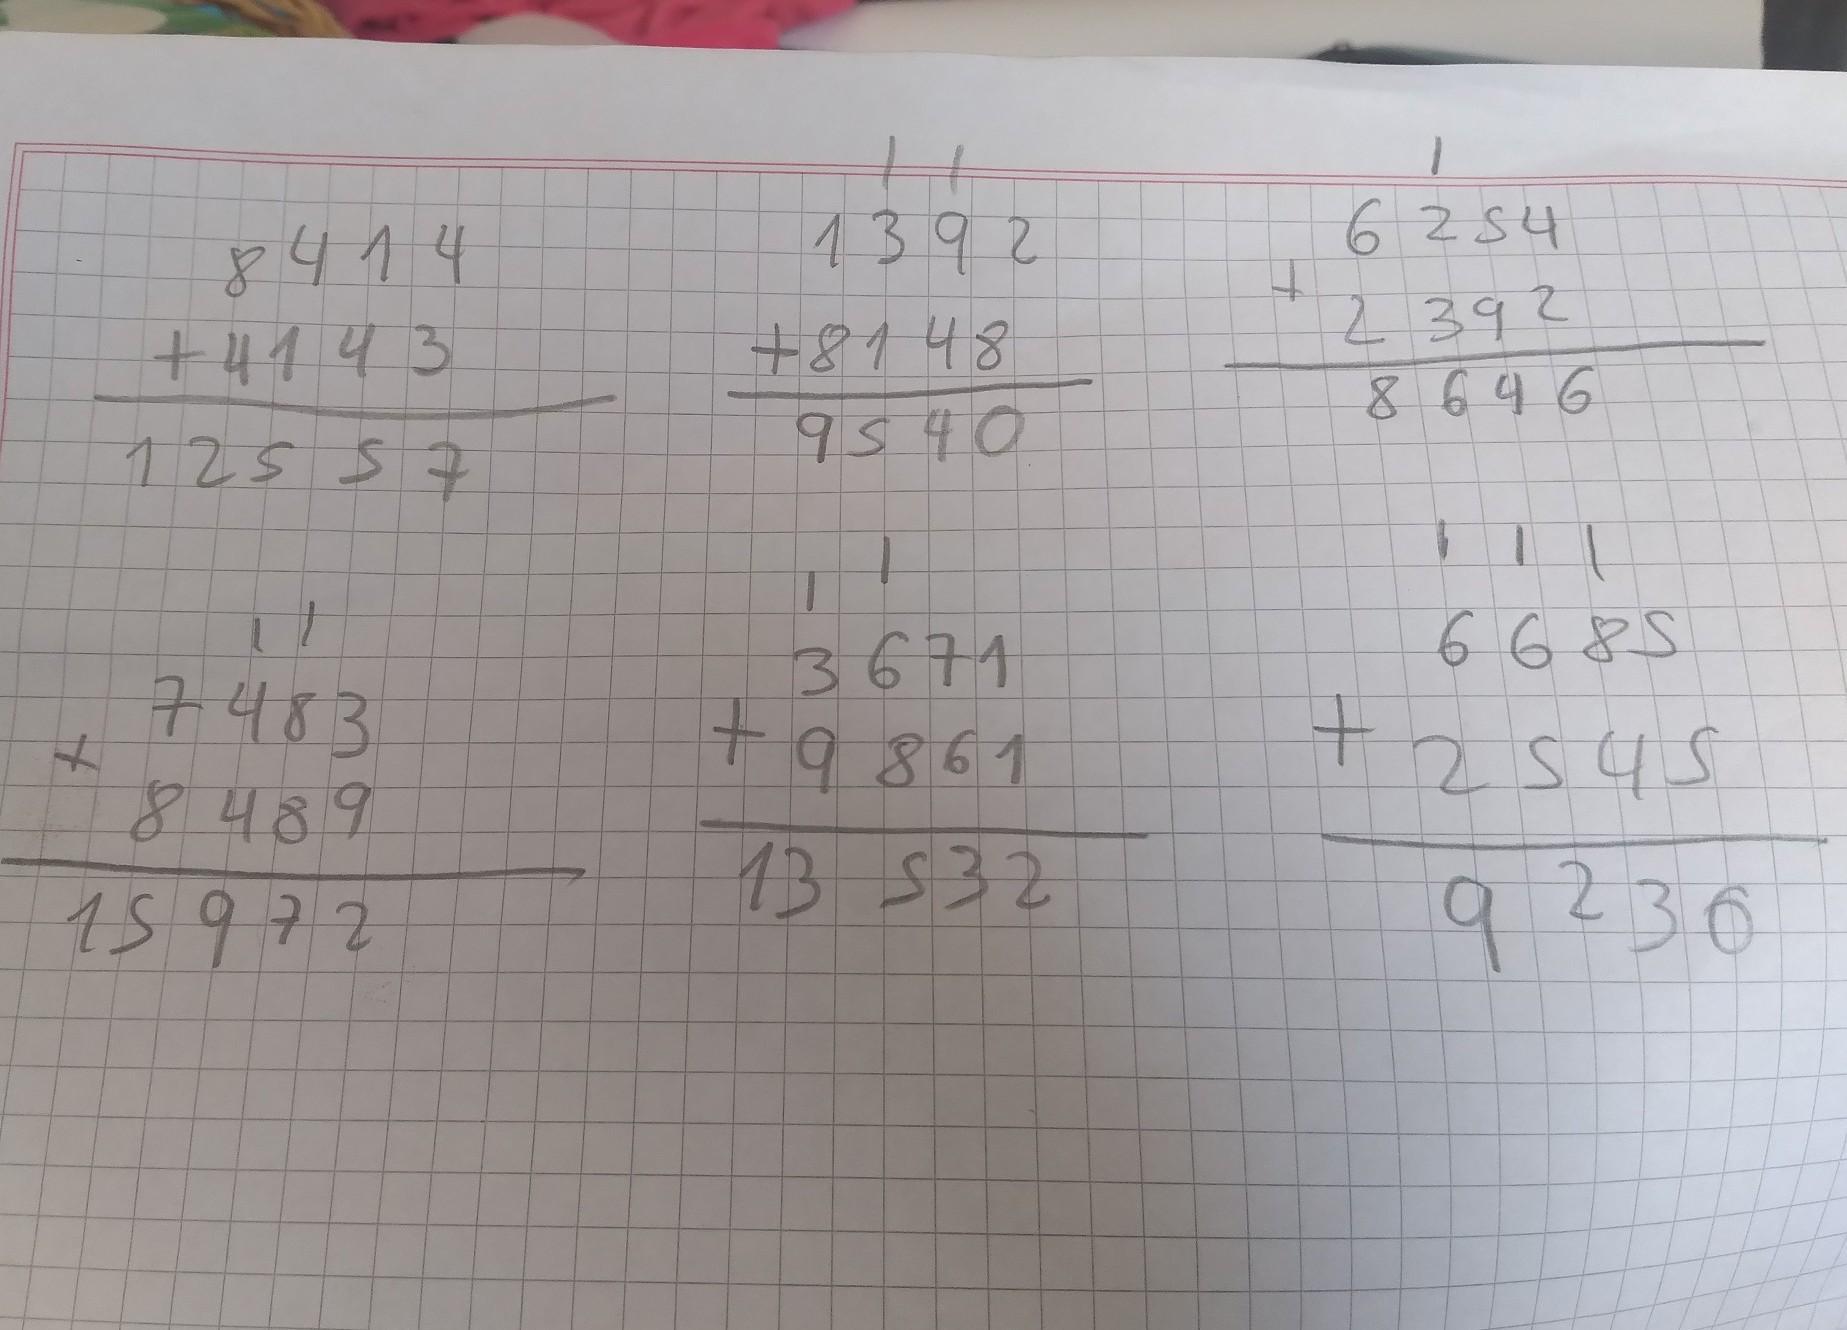 1 1
1
8414
1392
6254
+4143
+8148
+ 2392
12557
9540
8646
1 1
1 1
1 1 1
7483
3671
6685
+ 8489
+ 9861
+ 2545
15972
13532
9230